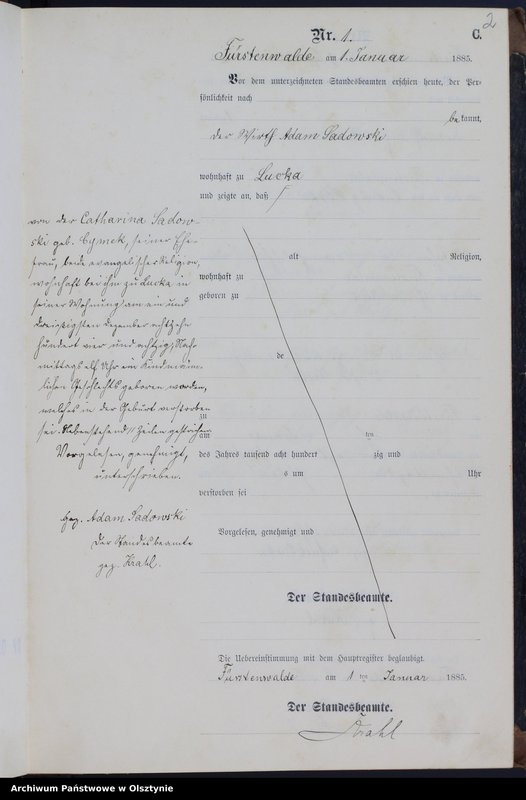 2
Nr. 1.
C.
Fürstenwalde am 1. Januar 1885.
Vor dem unterzeichneten Standesbeamten erschien heute, der Per-
sönlichkeit nach
bekannt,
der Wirth Adam Sadowski
wohnhaft zu Lucka
und zeigte an, daß
von der Catharina Sadow-
ski geb. Cymek, seiner Ehe-
frau, beide evangelischer Religion,
wohnhaft bei ihm zu Lucka in
seiner Wohnung am ein und
dreißigsten Dezember achtzehn
hundert vier und achtzig, Nach-
mittags elf Uhr ein Kind männ-
lichen Geschlechts geboren worden,
welches in der Geburt verstorben
sei. Nebenstehend 11 Zeilen gestrichen
Vorgelesen, genehmigt,
unterschrieben.
gez. Adam Sadowski
Der Standesbeamte
gez. Krahl.
alt Religion,
wohnhaft zu
geboren zu
de
zu
am ten
des Jahres tausend acht hundert zig und
s um Uhr
verstorben sei
Vorgelesen, genehmigt und
Der Standesbeamte.
Die Uebereinstimmung mit dem Hauptregister beglaubigt.
Fürstenwalde am 1 ten Januar 1885.
Der Standesbeamte.
Krahl
Archiwum Państwowe w Olsztynie